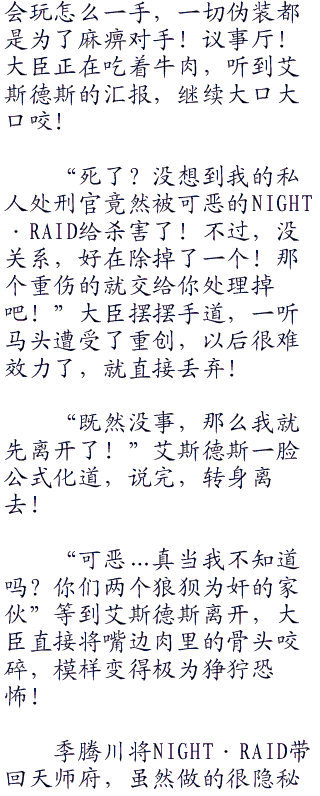 会玩怎么一手，一切伪装都
是为了麻痹对手！议事厅！
大臣正在吃着牛肉，听到艾
斯德斯的汇报，继续大口大
口咬！
“死了？没想到我的私
人处刑官竟然被可恶的NIGHT
·RAID给杀害了！不过，没
关系，好在除掉了一个！那
个重伤的就交给你处理掉
吧！”大臣摆摆手道，一听
马头遭受了重创，以后很难
效力了，就直接丢弃！
“既然没事，那么我就
先离开了！”艾斯德斯一脸
公式化道，说完，转身离
去！
“可恶…真当我不知道
吗？你们两个狼狈为奸的家
伙”等到艾斯德斯离开，大
臣直接将嘴边肉里的骨头咬
碎，模样变得极为狰狞恐
怖！
季腾川将NIGHT·RAID带
回天师府，虽然做的很隐秘